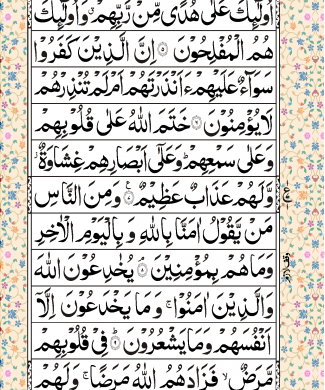 اُولٰٓئِكَ عَلٰى هُدًى مِّنْ رَّبِّهِمْ ۙ وَاُولٰٓئِكَ
هُمُ الْمُفْلِحُوْنَ ۝۵ اِنَّ الَّذِيْنَ كَفَرُوْا
سَوَآءٌ عَلَيْهِمْ ءَاَنْذَرْتَهُمْ اَمْ لَمْ تُنْذِرْهُمْ
لَا يُؤْمِنُوْنَ ۝۶ خَتَمَ اللّٰهُ عَلٰى قُلُوْبِهِمْ
وَعَلٰى سَمْعِهِمْ ؕ وَعَلٰٓى اَبْصَارِهِمْ غِشَاوَةٌ ۙ
وَّلَهُمْ عَذَابٌ عَظِيْمٌ ۝۷ وَمِنَ النَّاسِ
مَنْ يَّقُوْلُ اٰمَنَّا بِاللّٰهِ وَ بِالْيَوْمِ الْاٰخِرِ
وَمَا هُمْ بِمُؤْمِنِيْنَ ۝۸ يُخٰدِعُوْنَ اللّٰهَ
وَالَّذِيْنَ اٰمَنُوْا ۚ وَ مَا يَخْدَعُوْنَ اِلَّآ
اَنْفُسَهُمْ وَمَا يَشْعُرُوْنَ ۝۹ فِىْ قُلُوْبِهِمْ
مَّرَضٌ ۙ فَزَادَهُمُ اللّٰهُ مَرَضًا ۚ وَلَهُمْ